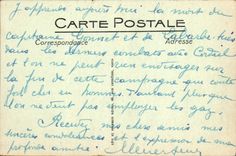 J'apprends aujourd'hui la mort du
CARTE POSTALE
capitaine et de tués
Correspondance Adresse
dans les derniers combats avec
et l'on ne peut rien envisager sur
la fin de cette campagne qui coûte
fort cher en hommes. Pourtant plus que
l'on ne veut pas employer les gaz.
Recevez mes chers amis mes
sincères condoléances et l'expression de ma
profonde amitié.